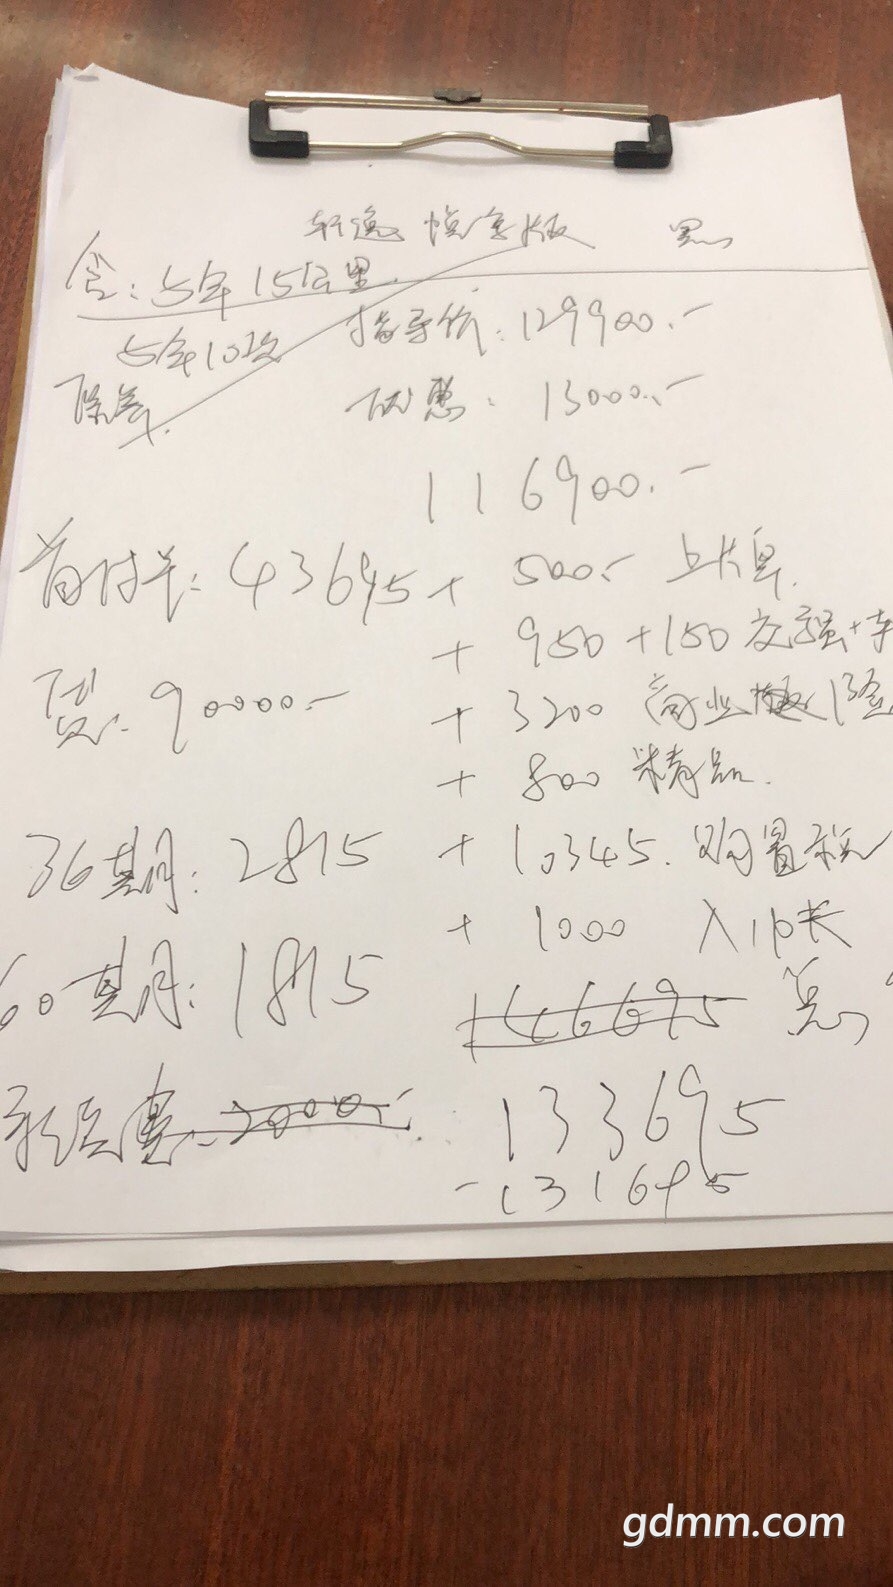 轩逸 悦享版 黑
含：5年15公里
5年10次
除差
指导价：129900.-
优惠：13000.-
116900.-
首付华：43695 + 500.- 上牌
+ 950 +150 交强+车
贷：90000.-
+ 3200 商业险
+ 800 精品.
36期月：2815 + 10345. 购置税
+ 1000 入户
60期月：1815
146695 总
2000.-
133695
-131695
gdmm.com